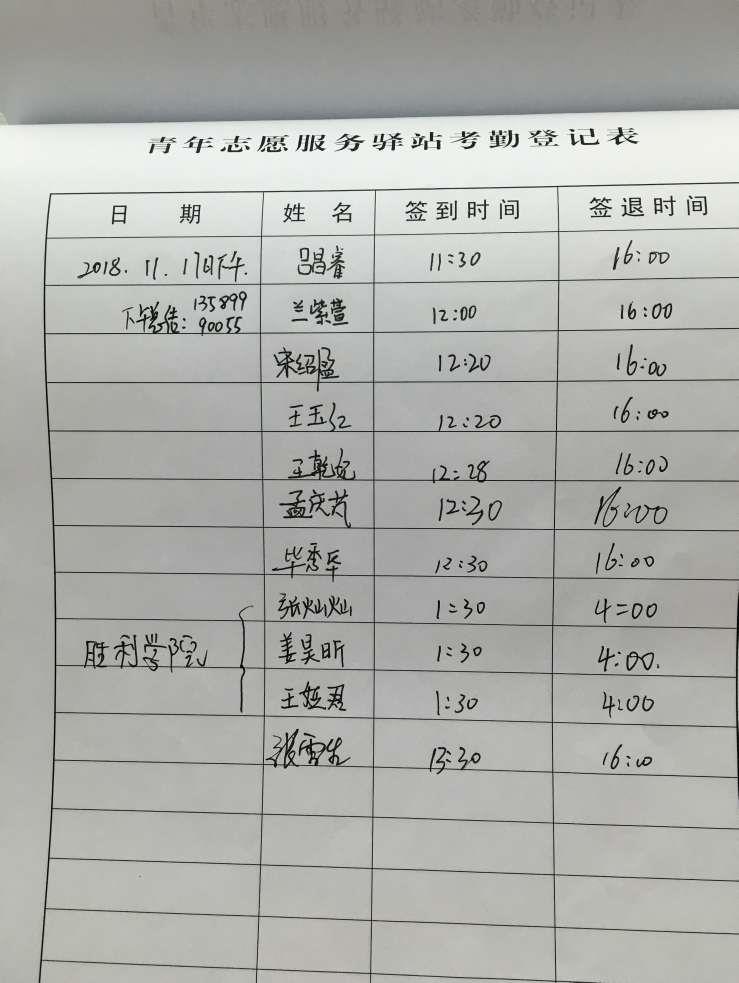 青年志愿服务驿站考勤登记表
日 期 姓 名 签到时间 签退时间
2018.11.17日下午. 吕昌睿 11:30 16:00
135899
90055 兰紫萱 12:00 16:00
宋绍盈 12:20 16:00
王玉红 12:20 16:00
王乾 12:28 16:00
孟庆芃 12:30 16:00
毕秀华 12:30 16:00
张灿灿 1:30 4:00
胜利学院 姜昊昕 1:30 4:00.
王 君 1:30 4:00
张雪 13:30 16:00